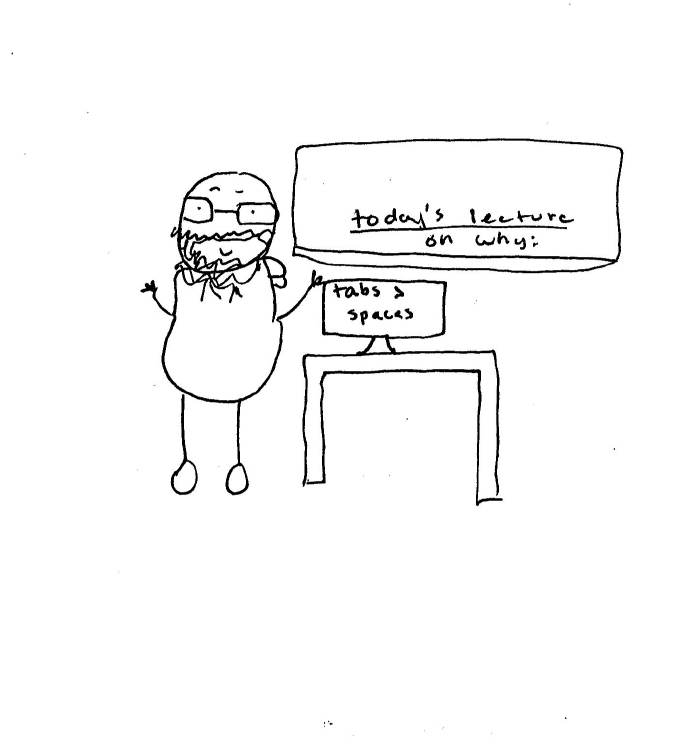 today's lecture
on why:
tabs >
spaces